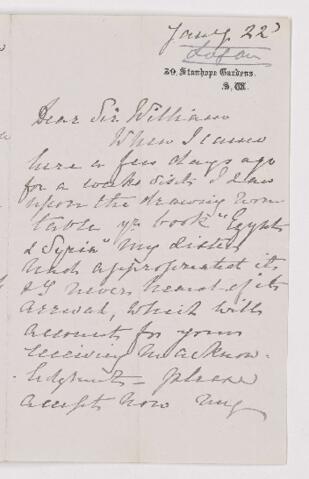 Jany 22d
29, Stanhope Gardens,
S.W.
Dear Sir William
When I came
here a few days ago
for a weeks visit I saw
upon the drawing room
table yr book "Egypt
& Syria" my sister
had appropriated it
& I never heard of its
arrival, which will
account for your
receiving no acknow-
-ledgment - please
accept now my